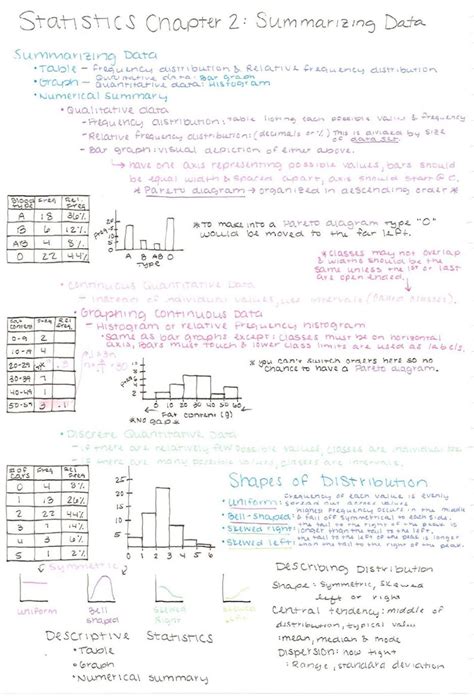 Statistics Chapter 2: Summarizing Data
Summarizing Data
• Table - Frequency distribution & Relative frequency distribution
• Graph - Qualitative data: Bar graph
Quantitative data: Histogram
• Numerical summary
• Qualitative data
- Frequency distribution: table listing each possible value & frequency
- Relative frequency distribution: (decimals or %) This is divided by size
of data set.
- Bar graph: visual depiction of either above.
↳ have one axis representing possible values, bars should
be equal width & spaced apart, axis should start @ 0.
* Pareto diagram → organized in descending order *
Blood type Freq Rel. Freq
A 18 36%
B 6 12%
AB 4 8%
O 22 44%
Freq.
20
15
10
5
A B AB O
Type
* To make into a Pareto diagram type "O"
would be moved to the far left.
* Classes may not overlap
& widths should be the
same unless the 1st or last
are open ended.
• Continuous Quantitative Data
- Instead of individual values, use intervals (called classes).
• Graphing Continuous Data
- Histogram or relative frequency histogram
• same as bar graphs except: classes must be on horizontal
axis, bars must touch & lower class limits are used as labels.
Fat content Freq Rel. Freq
0-9 2
10-19 4
20-29
30-39 7
40-49 1
50-59 3 .1
0 10 20 30 40 50 60
Fat content (g)
* NO gaps *
* You can't switch orders here so no
chance to have a Pareto diagram.
• Discrete Quantitative Data
- If there are relatively few possible values, classes are individual
- If there are many possible values, classes are intervals.
# of cars Freq Rel. Freq
0 4 8%
1 13 26%
2 22 44%
3 7 14%
4 3 6%
5 1 2%
25
20
15
10
5
0 1 2 3 4 5 6
Shapes of Distribution
• Uniform: frequency of each value is evenly
spread out across values
• Bell-shaped: highest frequency occurs in the middle
& fall off symmetrical to each side.
• Skewed right: the tail to the right of the peak is
longer than the tail to the left.
• Skewed left: the tail to the left of the peak is longer
than the tail to the right of the peak.
symmetric
Uniform
Bell shaped
Skewed Right
Skewed left
Describing Distribution
Shape: Symmetric, skewed
left or right
Central tendency: middle of
distribution, typical value
: mean, median & mode
Dispersion: how tight
: Range, standard deviation
Descriptive Statistics
• Table
• Graph
• Numerical Summary